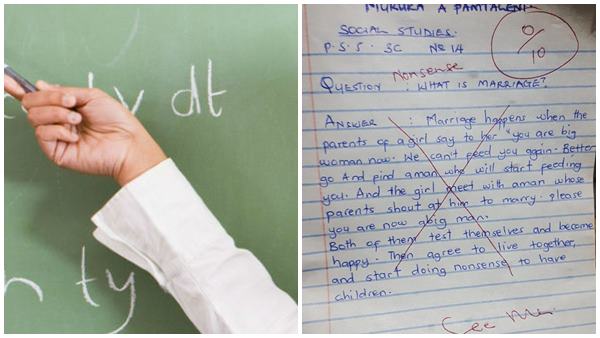 dt
ty
SOCIAL STUDIES.
No 14
0/10
Nonsense
QUESTION : WHAT IS MARRIAGE?
ANSWER : Marriage happens when the
parents of a girl say to her "you are big
woman now. We can't feed you again. Better
go And find aman who will start feeding
you. And the girl meet with aman whose
parents shout at him to marry. Please
you are now abig man.
Both of them test themselves and become
happy. Then agree to live together,
and start doing nonsense to have
children.
See Me